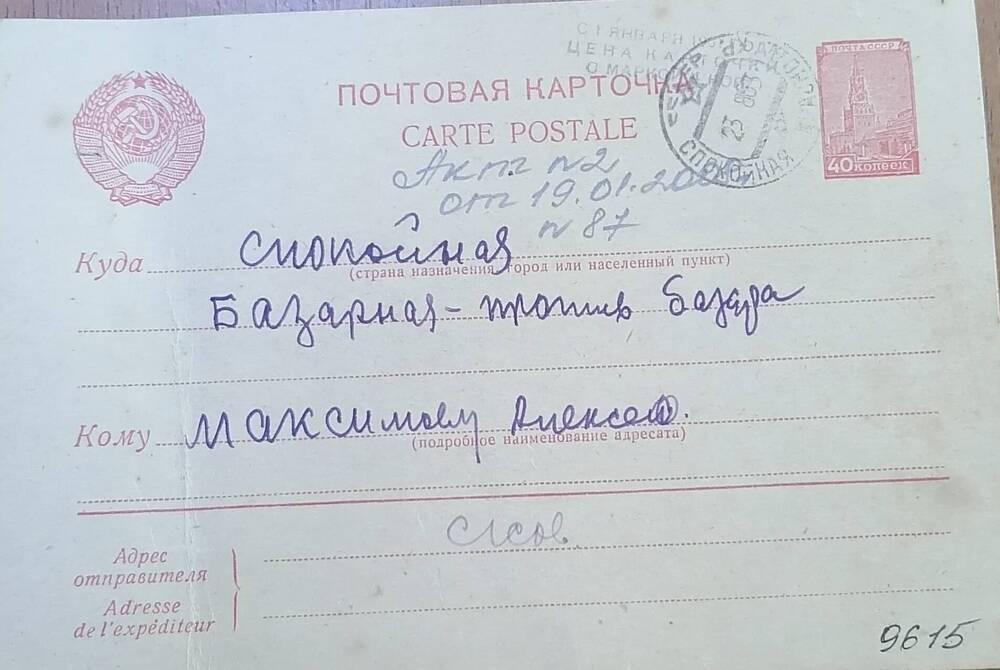 С 1 ЯНВАРЯ
ЦЕНА КАРТОЧКИ
О МАРКОЙ
ПОЧТОВАЯ КАРТОЧКА
CARTE POSTALE
23
СПОКОЙНАЯ
ПОЧТА СССР
40 КОПЕЕК
Акт N2
от 19.01.20
N 87
Куда Спокойная
(страна назначения, город или населенный пункт)
Базарная - против базара
Кому Максимову Алексею.
(подробное наименование адресата)
Адрес
отправителя
Adresse
de l'expéditeur
9615